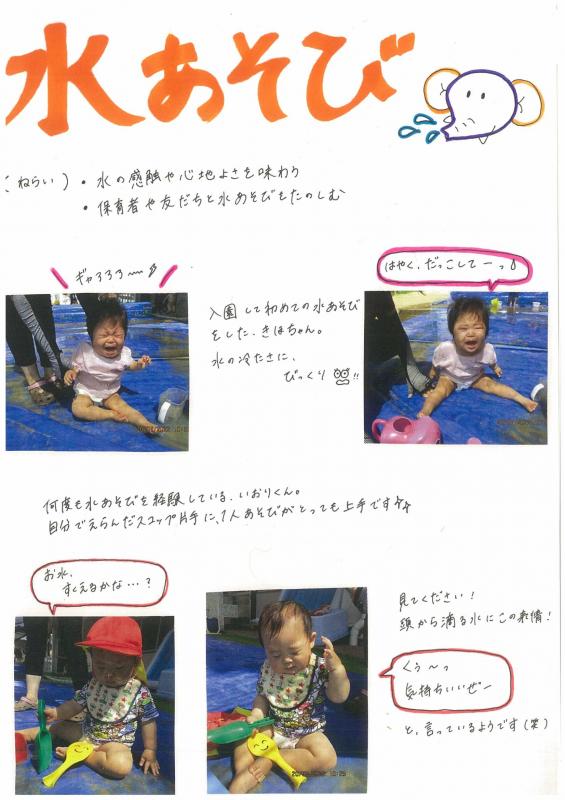 水あそび
(ねらい)・水の感触や心地よさを味わう
・保育者や友だちと水あそびをたのしむ
ギャろろろ〜〜
はやく、だっこしてーっ
入園して初めての水あそび
をした、きほちゃん。
水の冷たさに、
びっくり!!
何度も水あそびを経験している、いおりくん。
自分でえらんだスコップ片手に、1人あそびがとっても上手です☆☆
お水、
すくえるかな…?
見てください!
頭から滴る水にこの表情!
くぅ〜っ
気持ちいいぜー
と、言っているようです(笑)